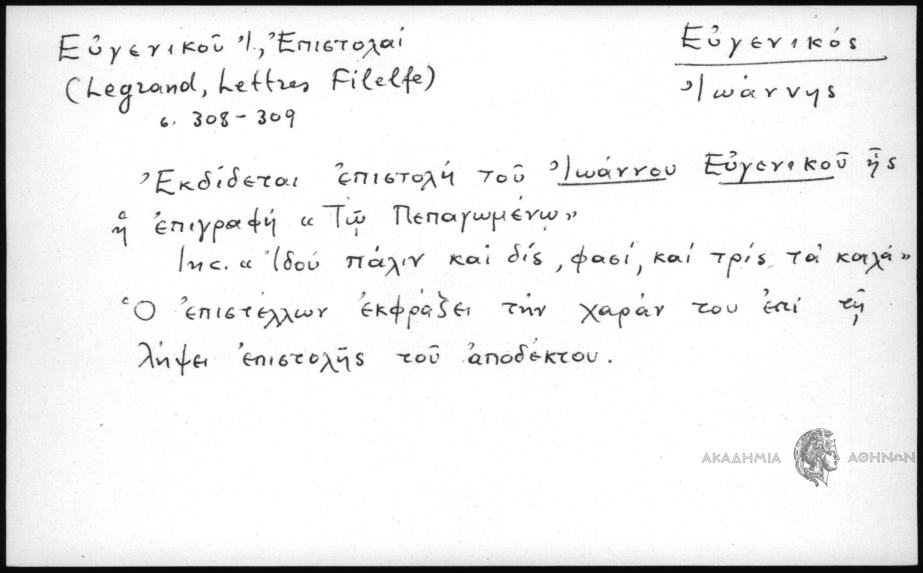 Εὐγενικοῦ Ἰ., Ἐπιστολαί
(Legrand, Lettres Filelfe)
σ. 308-309
Εὐγενικός
Ἰωάννης
Ἐκδίδεται ἐπιστολή τοῦ Ἰωάννου Εὐγενικοῦ ἧς
ἡ ἐπιγραφή « Τῷ Πεπαγωμένῳ»
Inc. « Ἰδού πάλιν καί δίς, φασί, καί τρίς τά καλά»
Ὁ ἐπιστέλλων ἐκφράζει τήν χαράν του ἐπί τῇ
λήψει ἐπιστολῆς τοῦ ἀποδέκτου.
ΑΚΑΔΗΜΙΑ ΑΘΗΝΩΝ